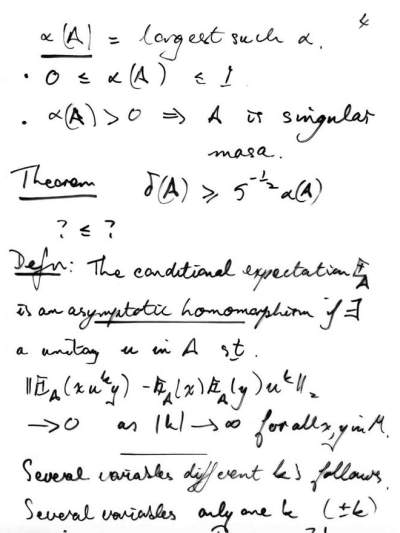 4
α(A) = largest such α.
• 0 ≤ α(A) ≤ 1
• α(A) > 0 ⇒ A is singular
masa.
Theorem δ(A) ≥ 5^{-1/2} α(A)
? ≤ ?
Defn: The conditional expectation 𝔼_A
is an asymptotic homomorphism if ∃
a unitary u in A st.
‖𝔼_A(x u^k y) - 𝔼_A(x) 𝔼_A(y) u^k‖_2
→ 0 as |k| → ∞ for all x, y in M.
Several variables different k's follows.
Several variables only one k (±k)